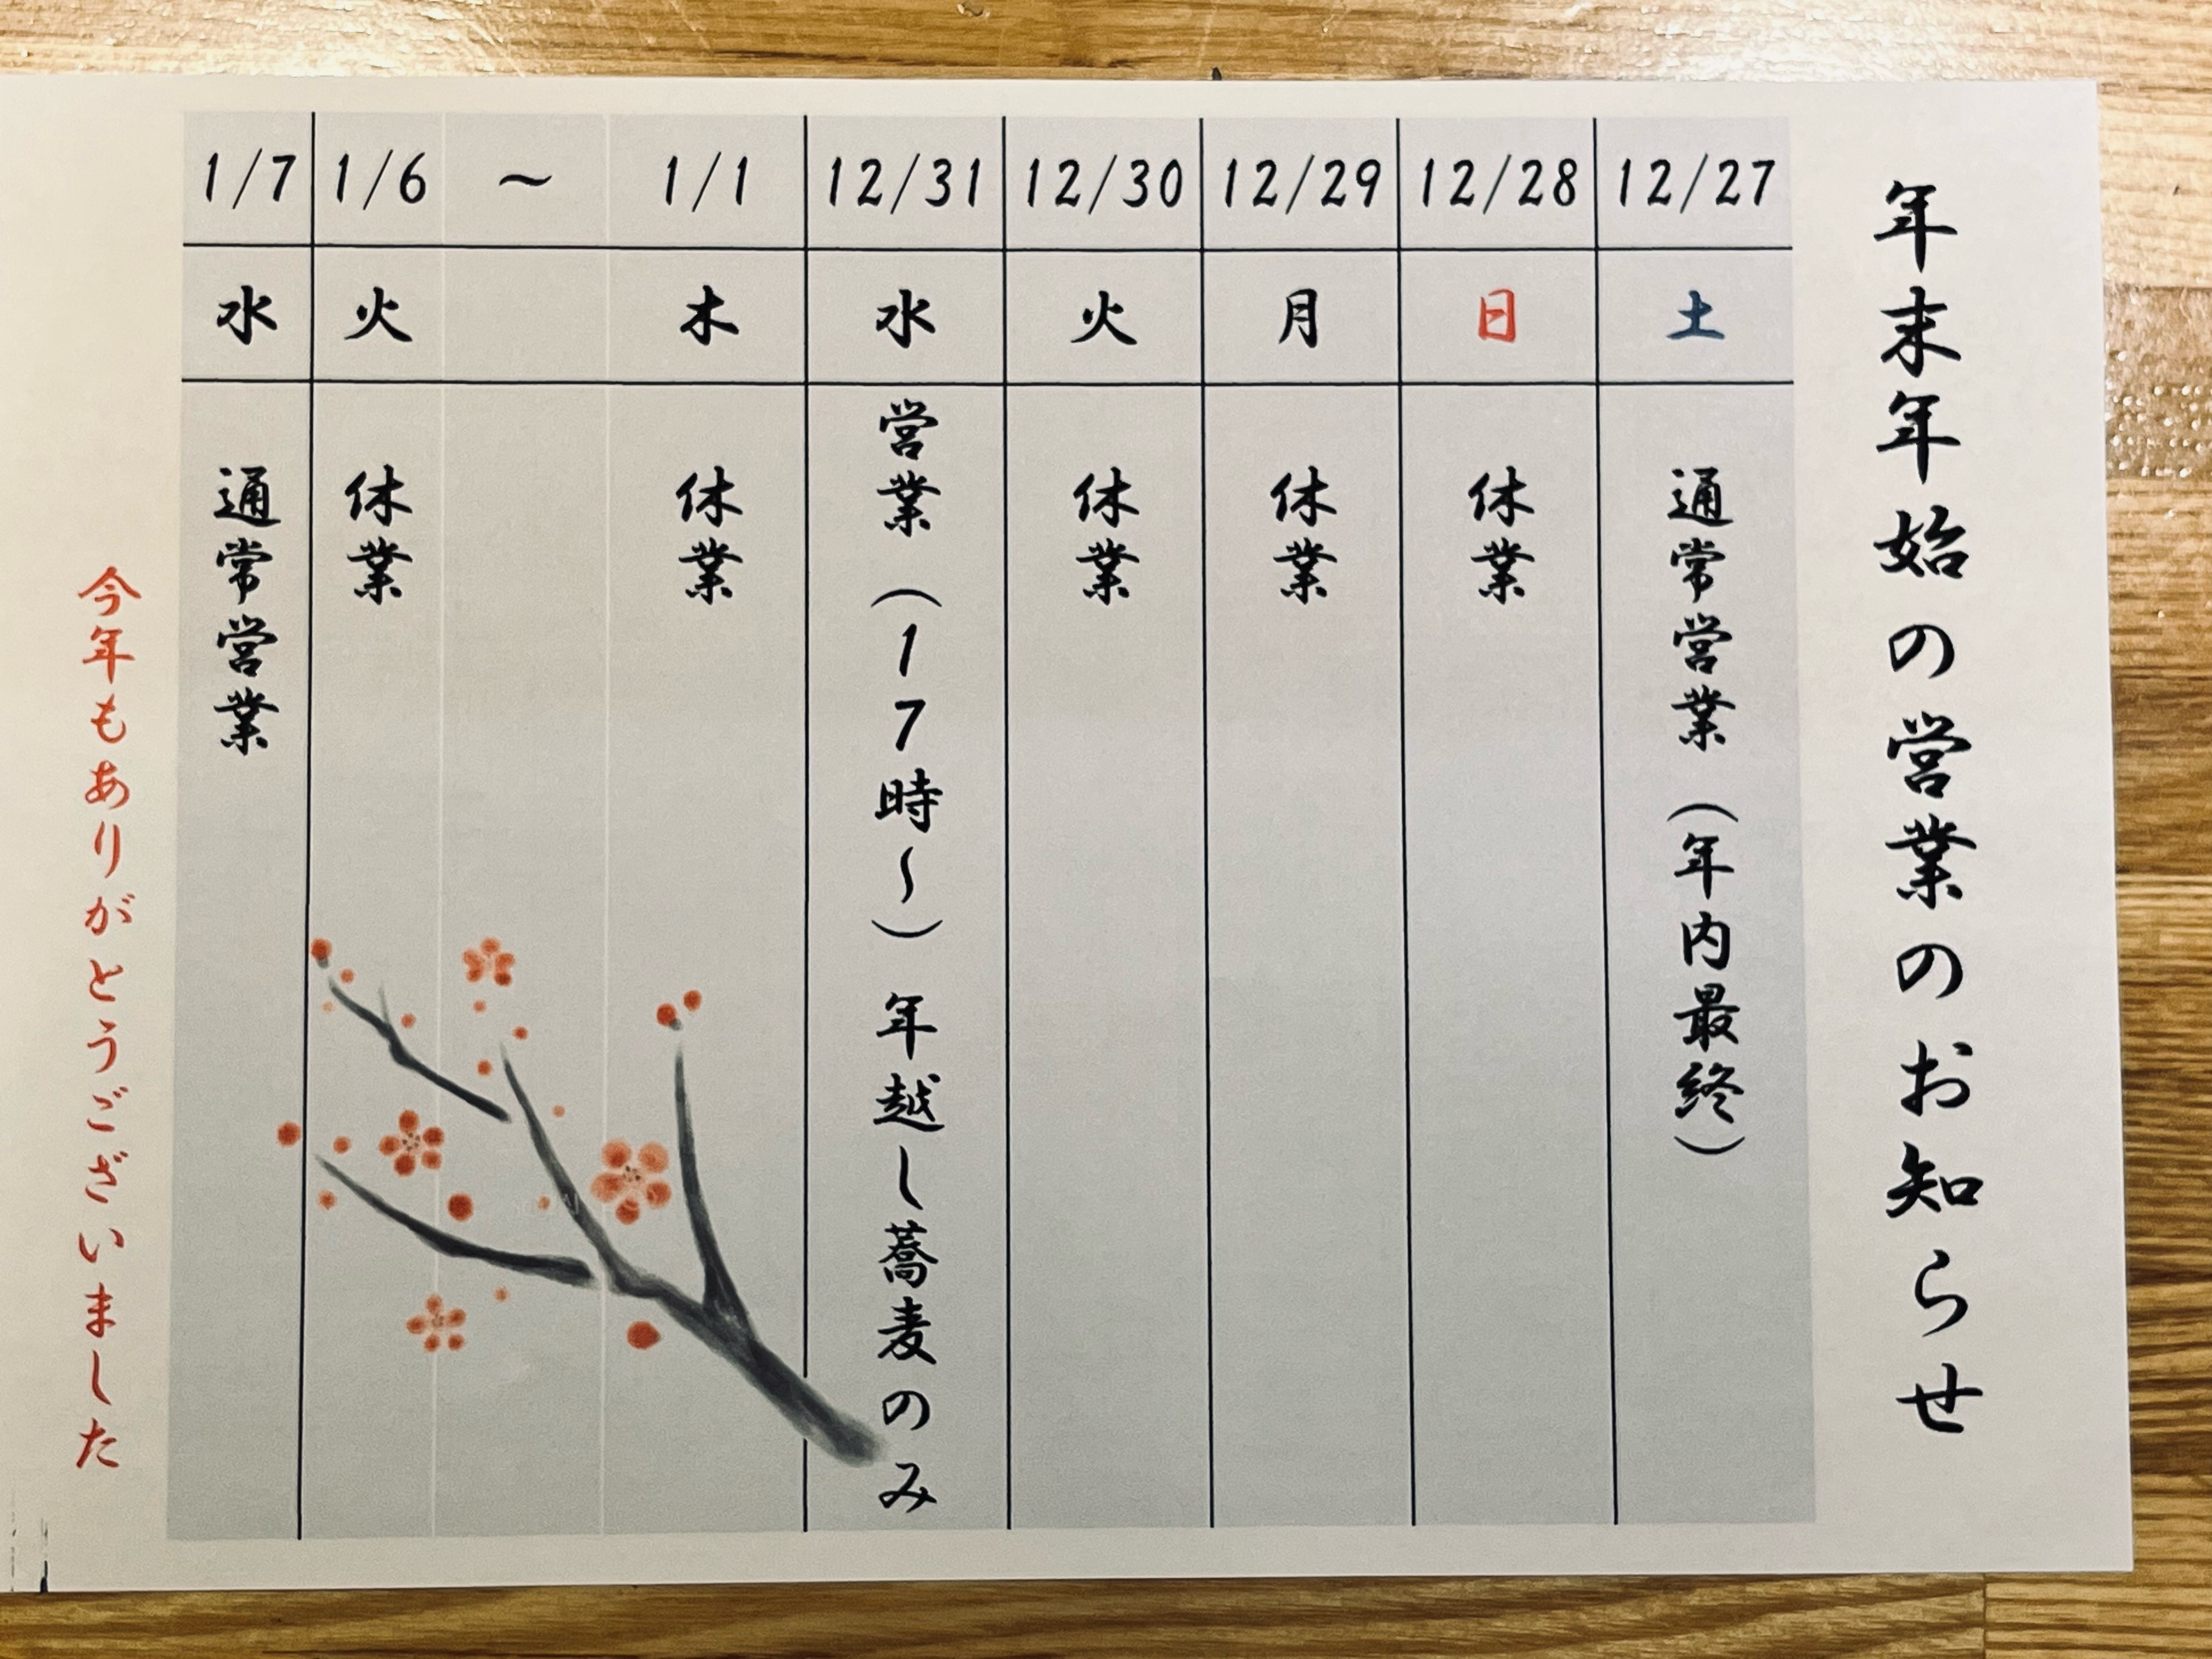 年末年始の営業のお知らせ
12/27
土
通常営業（年内最終）
12/28
日
休業
12/29
月
休業
12/30
火
休業
12/31
水
営業（17時～）年越し蕎麦のみ
1/1
木
休業
～
1/6
火
休業
1/7
水
通常営業
今年もありがとうございました